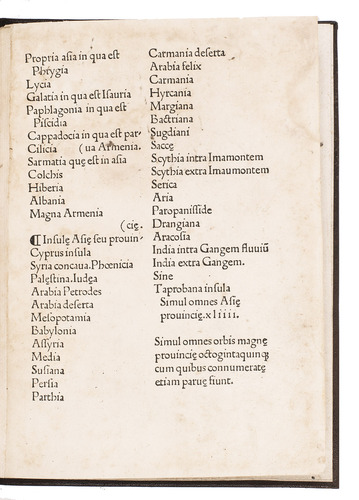 Propria asia in qua est
Phrygia
Lycia
Galatia in qua est Isauria
Paphlagonia in qua est
Piscidia
Cappadocia in qua est par⸗
Cilicia (ua Armenia.
Sarmatia quę est in asia
Colchis
Hiberia
Albania
Magna Armenia
(cię.
¶ Insulę Asię seu prouin⸗
Cyprus insula
Syria concaua. Phœnicia
Palęstina. Iudęa
Arabia Petrodes
Arabia deserta
Mesopotamia
Babylonia
Assyria
Media
Susiana
Persia
Parthia
Carmania deserta
Arabia felix
Carmania
Hyrcania
Margiana
Bactriana
Sugdiani
Saccę
Scythia intra Imamontem
Scythia extra Imaumontem
Serica
Aria
Paropanisside
Drangiana
Aracosia
India intra Gangem fluuiū
India extra Gangem.
Sine
Taprobana insula
Simul omnes Asię
prouincię. xliiii.
Simul omnes orbis magnę
prouincię octogintaquinqꝫ
cum quibus connumeratę
etiam paruę fiunt.